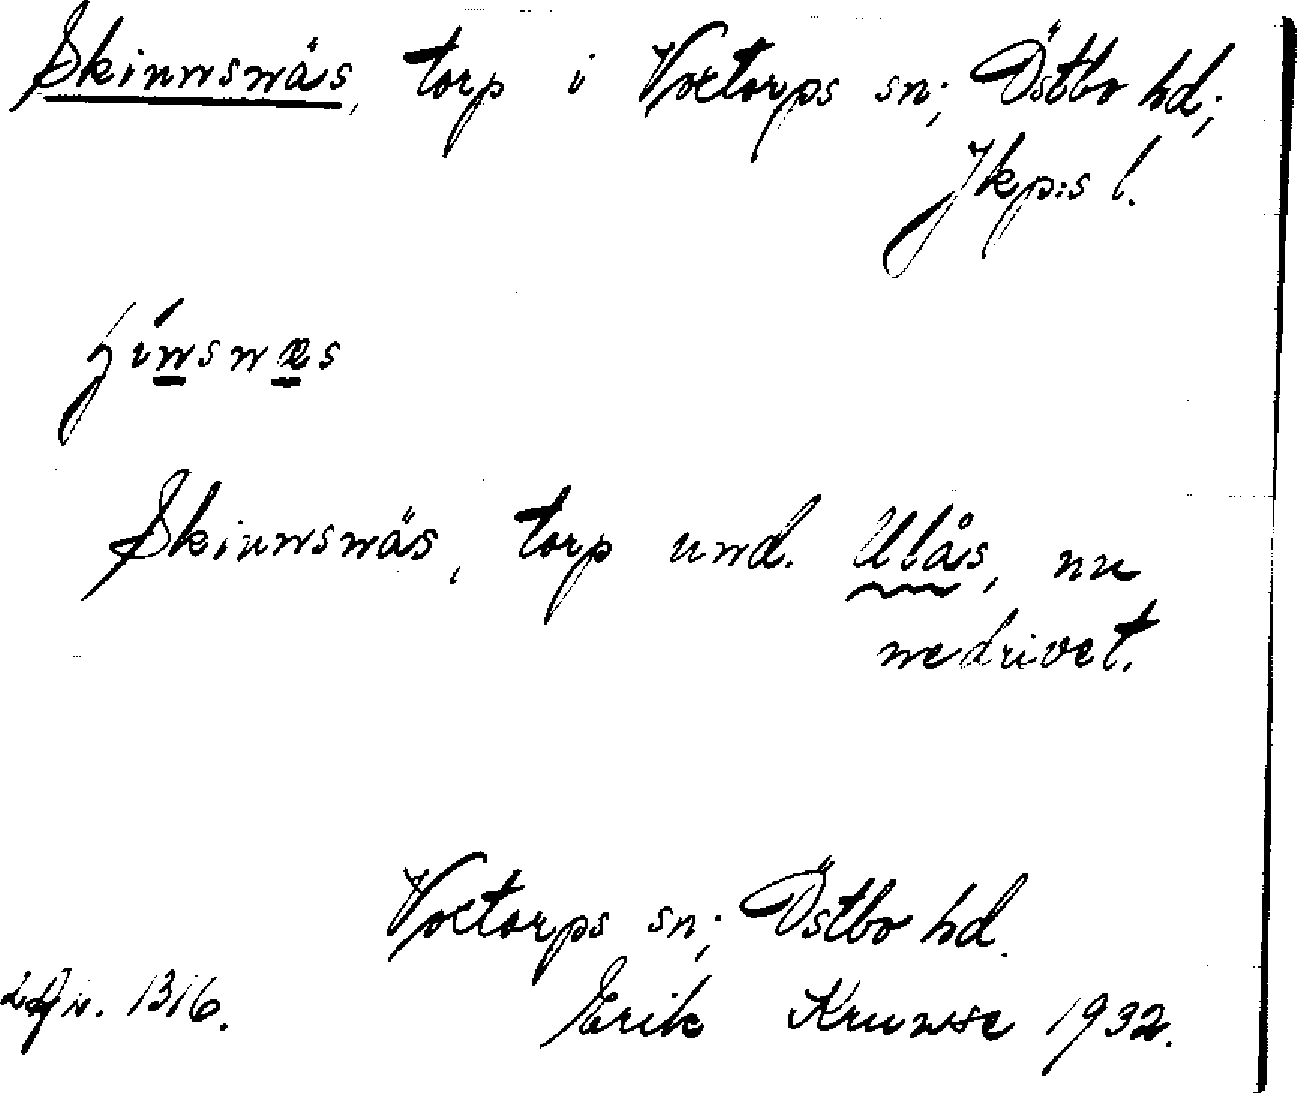 Skinnsnäs, torp i Voxtorps sn; Östbo hd;
Jkp:s l.
Skinnsnäs, torp und. Ulås, nu
nedrivet.
Voxtorps sn; Östbo hd.
1316. Erik 1932.